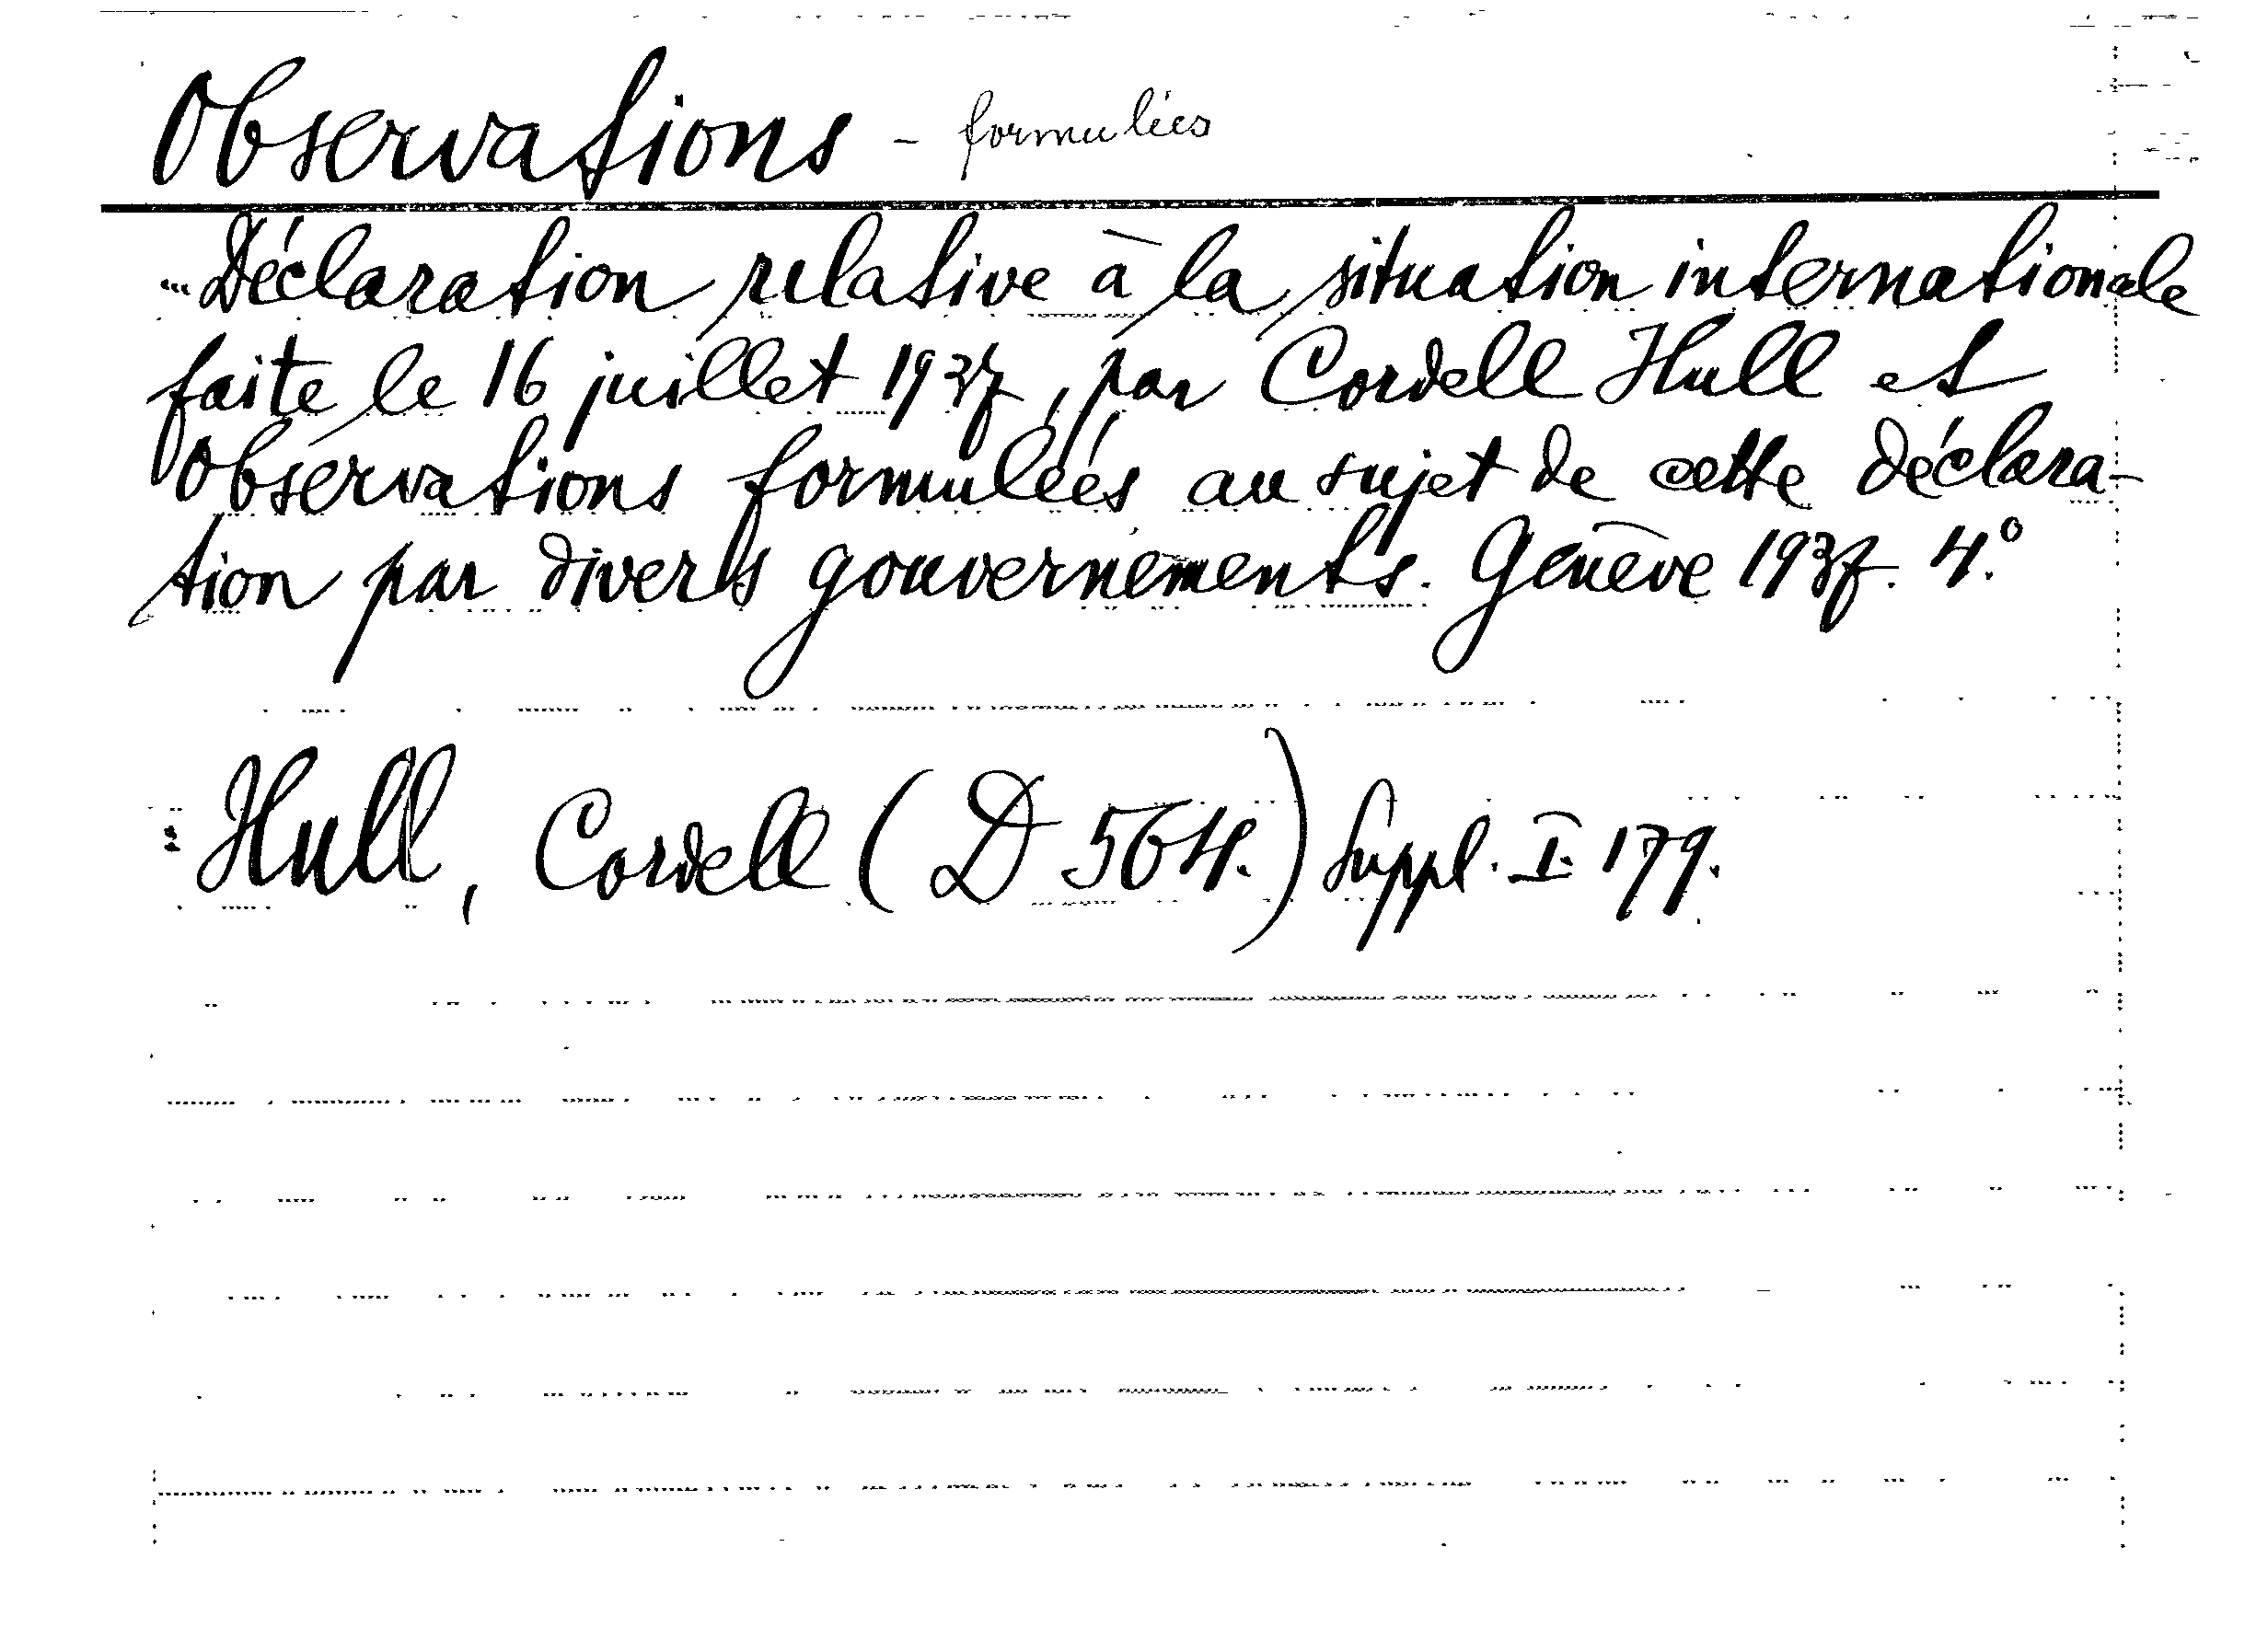 Observations - formulées
... Déclaration relative à la situation internationale
faite le 16 juillet 1937, par Cordell Hull et
Observations formulées au sujet de cette déclara-
tion par divers gouvernements. Genève 1937. 4.°
= Hull, Cordell (D 564.) Suppl. I. 179.